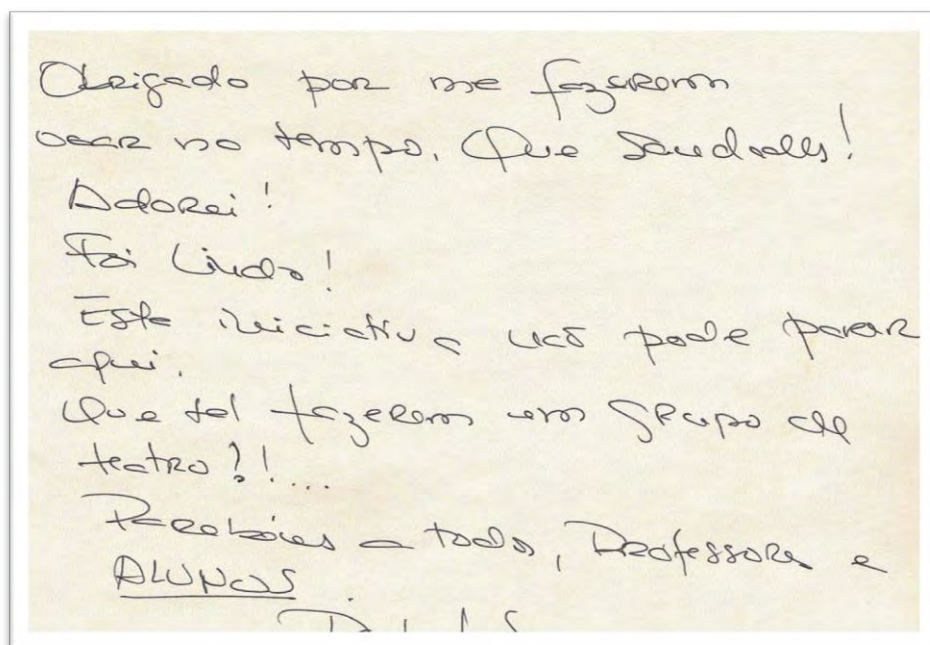 Obrigado por me fazerem
voar no tempo. Que Saudades!
Adorei!
Foi Lindo!
Esta iniciativa não pode parar
aqui.
Que tal fazerem um grupo de
teatro?!...
Parabéns a todos, Professores e
ALUNOS.